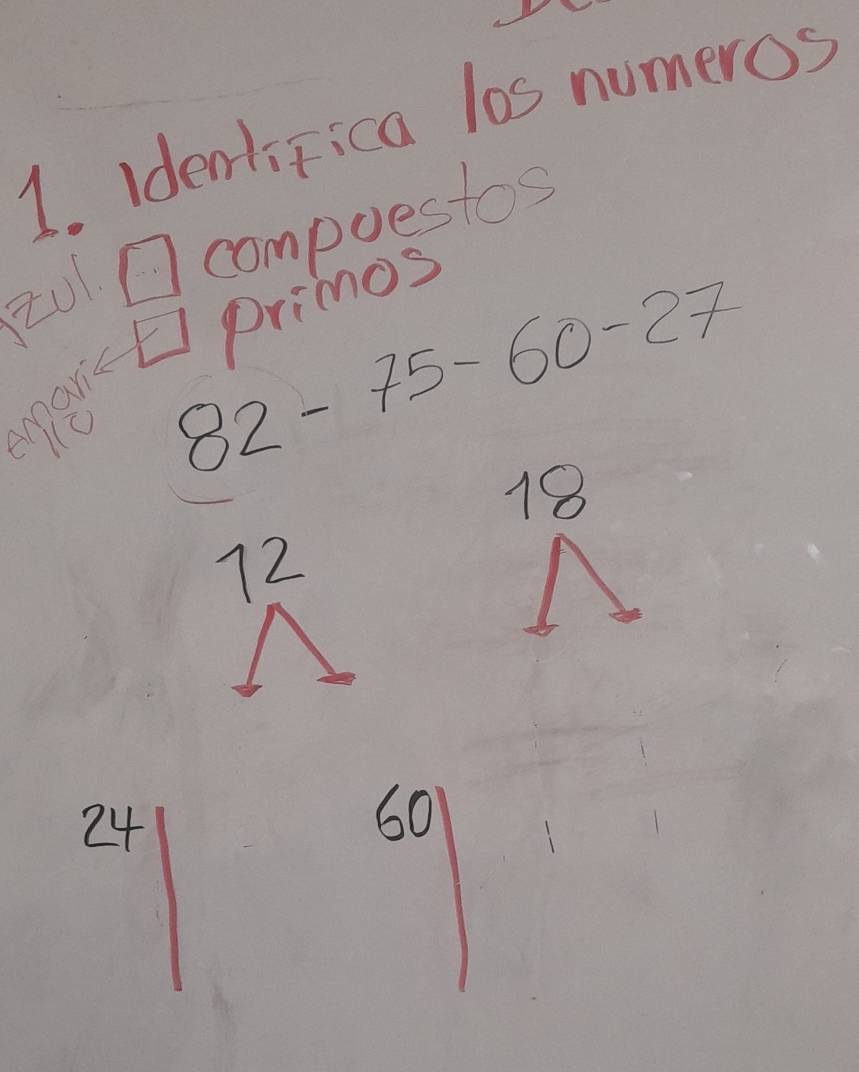 1. Identifica los numeros
azul. compuestos
amarillo primos
82 - 75 - 60 - 27
12 18
24 60